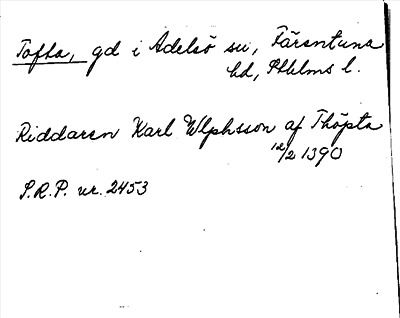 Tofta, gd i Adelsö sn, Färentuna
hd, Sthlms l.
Riddaren Karl Ulphsson af Thöpta
12/2 1390
S.R.P. nr. 2453